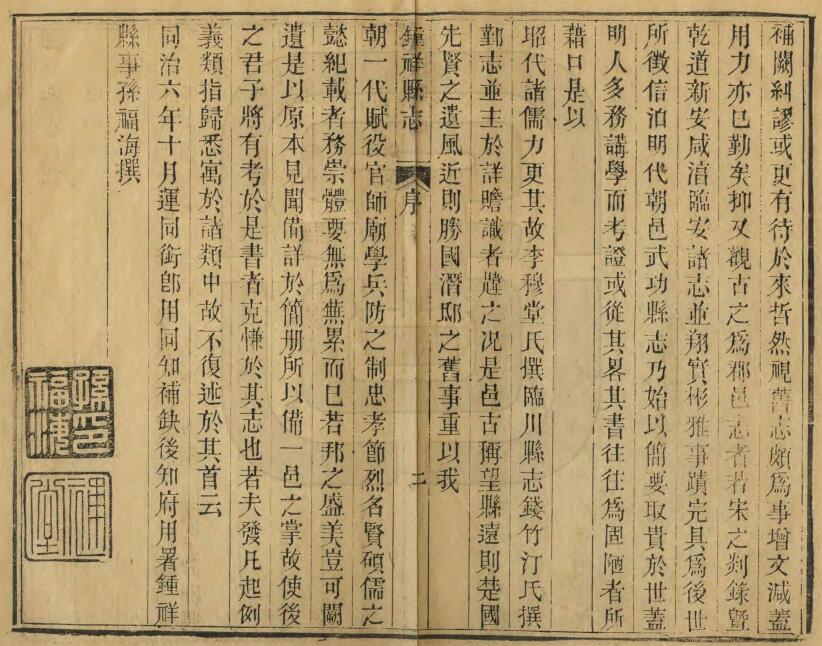 補闕糾謬或更有待於來哲然視舊志頗爲事增文減蓋
用力亦已勤矣抑又觀古之爲郡邑志者若宋之剡錄曁
乾道新安咸淳臨安諸志並翔實彬雅事蹟完具爲後世
所徵信洎明代朝邑武功縣志乃始以簡要取貴於世蓋
明人多務講學而考證或從其畧其書往往爲固陋者所
藉口是以
昭代諸儒力更其故李穆堂氏撰臨川縣志錢竹汀氏撰
鄞志並主於詳贍識者韙之况是邑古稱望縣遠則楚國
先賢之遺風近則勝國潛邸之舊事重以我
鍾祥縣志 序 二
朝一代賦役官師廟學兵防之制忠孝節烈名賢碩儒之
懿紀載者務崇體要無爲蕪累而已若邦之盛美豈可闕
遺是以原本見聞備詳於簡册所以備一邑之掌故使後
之君子將有考於是書者克慊於其志也若夫發凡起例
義類指歸悉寓於諸類中故不復述於其首云
同治六年十月運同銜卽用同知補缺後知府用署鍾祥
縣事孫福海撰
孫福海印